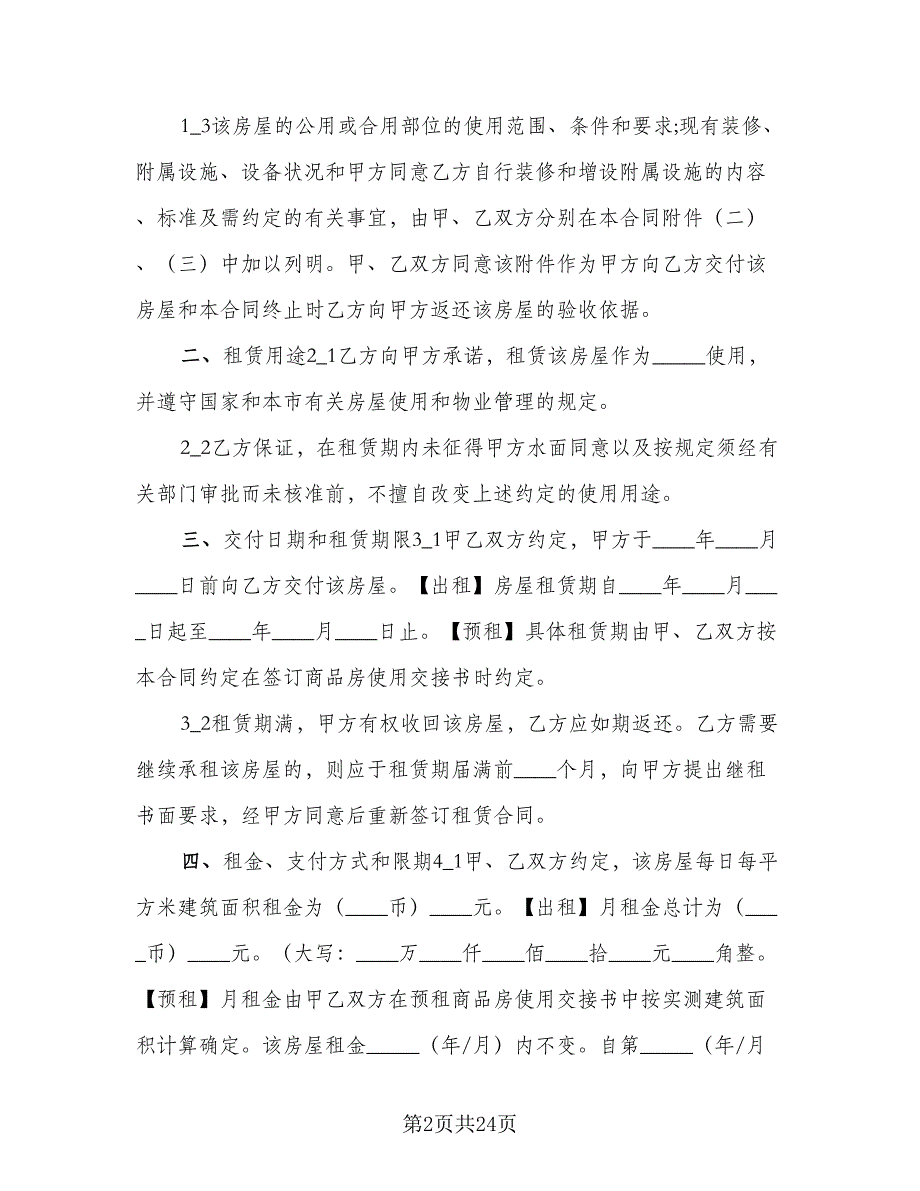 1_3该房屋的公用或合用部位的使用范围、条件和要求;现有装修、
附属设施、设备状况和甲方同意乙方自行装修和增设附属设施的内容
、标准及需约定的有关事宜，由甲、乙双方分别在本合同附件（二）
、（三）中加以列明。甲、乙双方同意该附件作为甲方向乙方交付该
房屋和本合同终止时乙方向甲方返还该房屋的验收依据。
二、租赁用途2_1乙方向甲方承诺，租赁该房屋作为_____使用，
并遵守国家和本市有关房屋使用和物业管理的规定。
2_2乙方保证，在租赁期内未征得甲方水面同意以及按规定须经有
关部门审批而未核准前，不擅自改变上述约定的使用用途。
三、交付日期和租赁期限3_1甲乙双方约定，甲方于____年____月
____日前向乙方交付该房屋。【出租】房屋租赁期自____年____月___
_日起至____年____月____日止。【预租】具体租赁期由甲、乙双方按
本合同约定在签订商品房使用交接书时约定。
3_2租赁期满，甲方有权收回该房屋，乙方应如期返还。乙方需要
继续承租该房屋的，则应于租赁期届满前____个月，向甲方提出继租
书面要求，经甲方同意后重新签订租赁合同。
四、租金、支付方式和限期4_1甲、乙双方约定，该房屋每日每平
方米建筑面积租金为（____币）____元。【出租】月租金总计为（___
_币）____元。（大写：____万____仟____佰____拾____元____角整。
【预租】月租金由甲乙双方在预租商品房使用交接书中按实测建筑面
积计算确定。该房屋租金_____（年/月）内不变。自第_____（年/月
第2页共24页